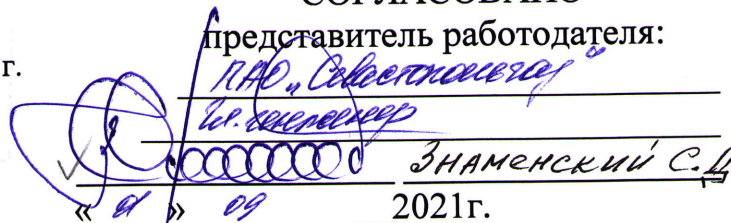 СОГЛАСОВАНО
представитель работодателя:
г.
ПАО „Севастопольгаз"
Гл. инженер
ЗНАМЕНСКИЙ С.Ц
« 01 » 09 2021г.